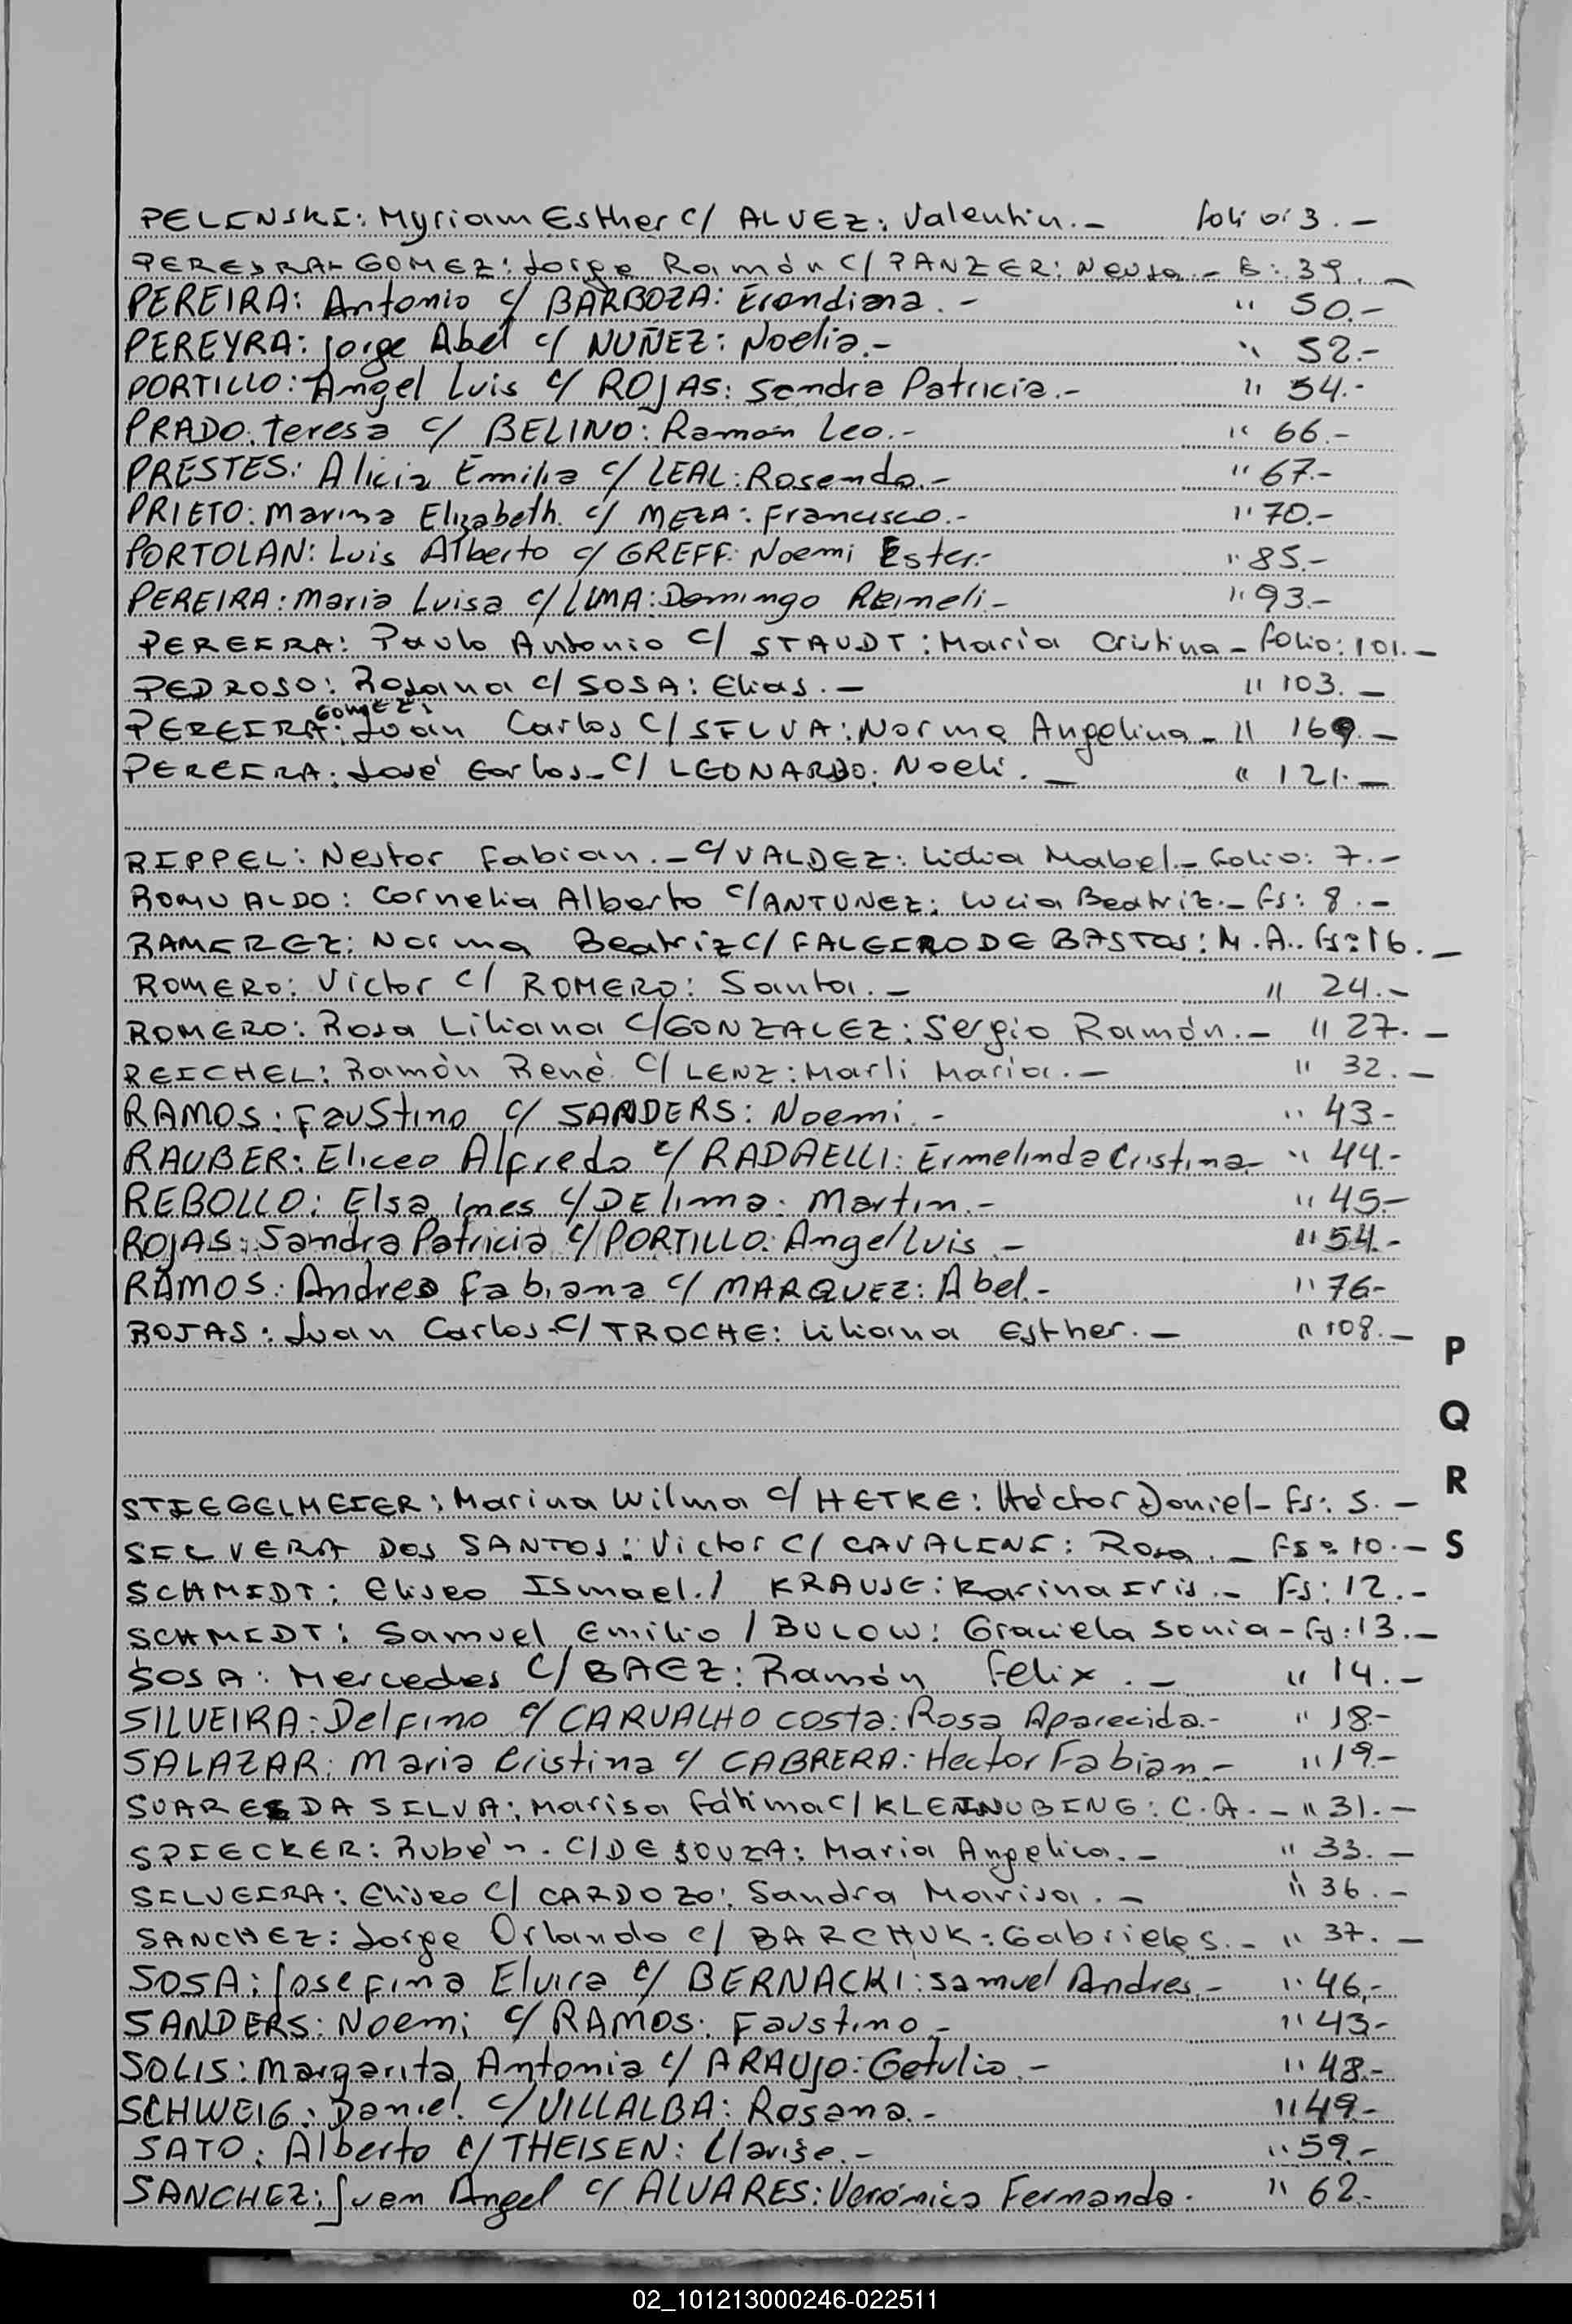 PELINSKI: Myriam Esther c/ ALVEZ: Valentin.- folio: 3.-
GOMEZ: Jorge Ramón c/ PANZER: Neusa.- Fs: 39.-
PEREIRA: Antonio c/ BARBOZA: Erondiana.- " 50.-
PEREYRA: Jorge Abel c/ NUÑEZ: Noelia.- " 52.-
PORTILLO: Angel Luis c/ ROJAS: Sandra Patricia.- " 54.-
PRADO: Teresa c/ BELINO: Ramon Leo.- " 66.-
PRESTES: Alicia Emilia c/ LEAL: Rosendo.- " 67.-
PRIETO: Marina Elizabeth c/ MEZA: Francisco.- " 70.-
PORTOLAN: Luis Alberto c/ GREFF: Noemi Ester.- " 85.-
PEREIRA: Maria Luisa c/ LIMA: Domingo Remeli.- " 93.-
PEREIRA: Paulo Antonio c/ STAUDT: María Cristina - folio: 101.-
PEDROSO: Rosana c/ SOSA: Elias.- " 103.-
GOMEZ:
PEREIRA: Juan Carlos c/ SILVA: Norma Angelina - " 169.-
PEREIRA: José Carlos - c/ LEONARDO: Noeli.- " 121.-
RIPPEL: Nestor Fabian.- c/ VALDEZ: Lidia Mabel.- Folio: 7.-
ROMUALDO: Cornelia Alberto c/ ANTUNEZ: Lucia Beatriz.- Fs: 8.-
RAMIREZ: Norma Beatriz c/ FALEIRO DE BASTOS: M.A.. Fs: 16.-
ROMERO: Victor c/ ROMERO: Santa.- " 24.-
ROMERO: Rosa Liliana c/ GONZALEZ: Sergio Ramón.- " 27.-
REICHEL: Ramón René c/ LENZ: Marli María.- " 32.-
RAMOS: Faustino c/ SANDERS: Noemi.- " 43.-
RAUBER: Eliceo Alfredo c/ RADAELLI: Ermelinda Cristina - " 44.-
REBOLLO: Elsa Ines c/ DE lima: Martin.- " 45.-
ROJAS: Sandra Patricia c/ PORTILLO: Angel Luis.- " 54.-
RAMOS: Andrea Fabiana c/ MARQUEZ: Abel.- " 76.-
ROJAS: Juan Carlos - c/ TROCHE: Liliana Esther.- " 108.-
P
Q
R
STIEGELMEIER: Marina Wilma c/ HETKE: Héctor Daniel - Fs: 5.-
SILVERA DOS SANTOS: Victor c/ CAVALINI: Rosa.- Fs: 10.- S
SCHMIDT: Eliseo Ismael./ KRAUSE: Karina Iris.- Fs: 12.-
SCHMIDT: Samuel Emilio / BULOW: Graciela Sonia - Fs: 13.-
SOSA: Mercedes c/ BAEZ: Ramón Felix.- " 14.-
SILVEIRA: Delfino c/ CARVALHO costa: Rosa Aparecida.- " 18.-
SALAZAR: Maria Cristina c/ CABRERA: Hector Fabian.- " 19.-
SUARES DA SILVA: Marisa Fátima c/ KLEINUBING: C.A.- " 31.-
SPIECKER: Rubén. c/ DE SOUZA: María Angelica.- " 33.-
SILVEIRA: Eliseo c/ CARDOZO: Sandra Marisa.- " 36.-
SANCHEZ: Jorge Orlando c/ BARCHUK: Gabriela S.- " 37.-
SOSA: Josefina Elvira c/ BERNACKI: Samuel Andres.- " 46.-
SANDERS: Noemi c/ RAMOS: Faustino.- " 43.-
SOLIS: Margarita Antonia c/ ARAUJO: Getulio.- " 48.-
SCHWEIG: Daniel c/ VILLALBA: Rosana.- " 49.-
SATO: Alberto c/ THEISEN: Clarise.- " 59.-
SANCHEZ: Juan Angel c/ ALVARES: Verónica Fernanda. " 62.-
02_101213000246-022511